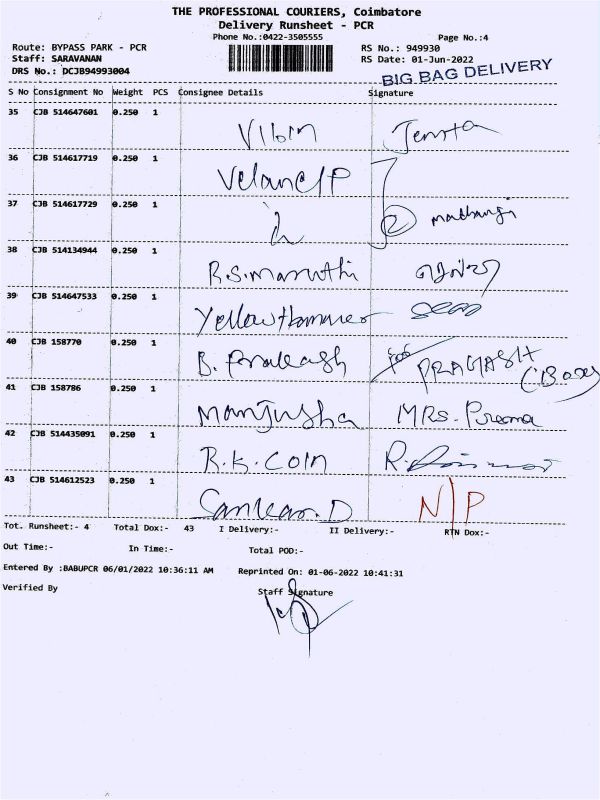 THE PROFESSIONAL COURIERS, Coimbatore
Delivery Runsheet - PCR
Phone No.:0422-3505555
Page No.:4
Route: BYPASS PARK - PCR
RS No.: 949930
Staff: SARAVANAN
RS Date: 01-Jun-2022
DRS No.: DCJB94993004
BIG BAG DELIVERY
S No Consignment No Weight PCS Consignee Details Signature
35 CJB 514647601 0.250 1
Vibin
36 CJB 514617719 0.250 1
37 CJB 514617729 0.250 1
2 mathangi
38 CJB 514134944 0.250 1
R.S.maruthi
39 CJB 514647533 0.250 1
Yellow Hammer
40 CJB 158770 0.250 1
B. Prakash PRAGASH
41 CJB 158786 0.250 1
Manjusha MRS. Prema
42 CJB 514435091 0.250 1
R.K. COIN R.
43 CJB 514612523 0.250 1
Sankar. D N/P
Tot. Runsheet:- 4 Total Dox:- 43 I Delivery:- II Delivery:- RTN Dox:-
Out Time:- In Time:- Total POD:-
Entered By :BABUPCR 06/01/2022 10:36:11 AM Reprinted On: 01-06-2022 10:41:31
Verified By Staff Signature